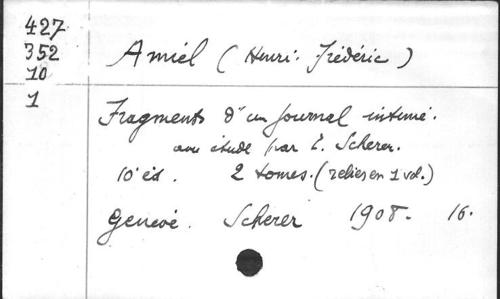 427
352
10
1
Amiel (Henri-Frédéric)
Fragments d'un Journal intime.
ave étude par E. Scherer.
10e éd. 2 tomes. (relies en 1 vol.)
Genevé. Scherer 1908. 16.